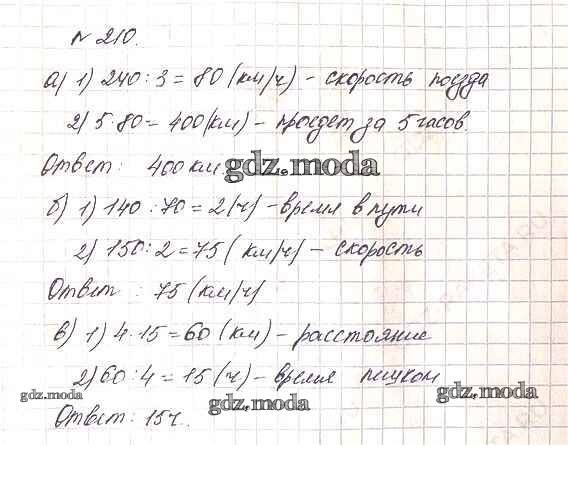 № 210.
а) 1) 240 : 3 = 80 (км/ч) - скорость поезда
2) 5·80 = 400 (км) - проедет за 5 часов.
Ответ: 400 км.
gdz.moda
б) 1) 140 : 70 = 2 (ч) - время в пути
2) 150 : 2 = 75 (км/ч) - скорость
Ответ: 75 (км/ч)
в) 1) 4·15 = 60 (км) - расстояние
2) 60 : 4 = 15 (ч) - время пешком
gdz.moda gdz.moda gdz.moda
Ответ: 15 ч.